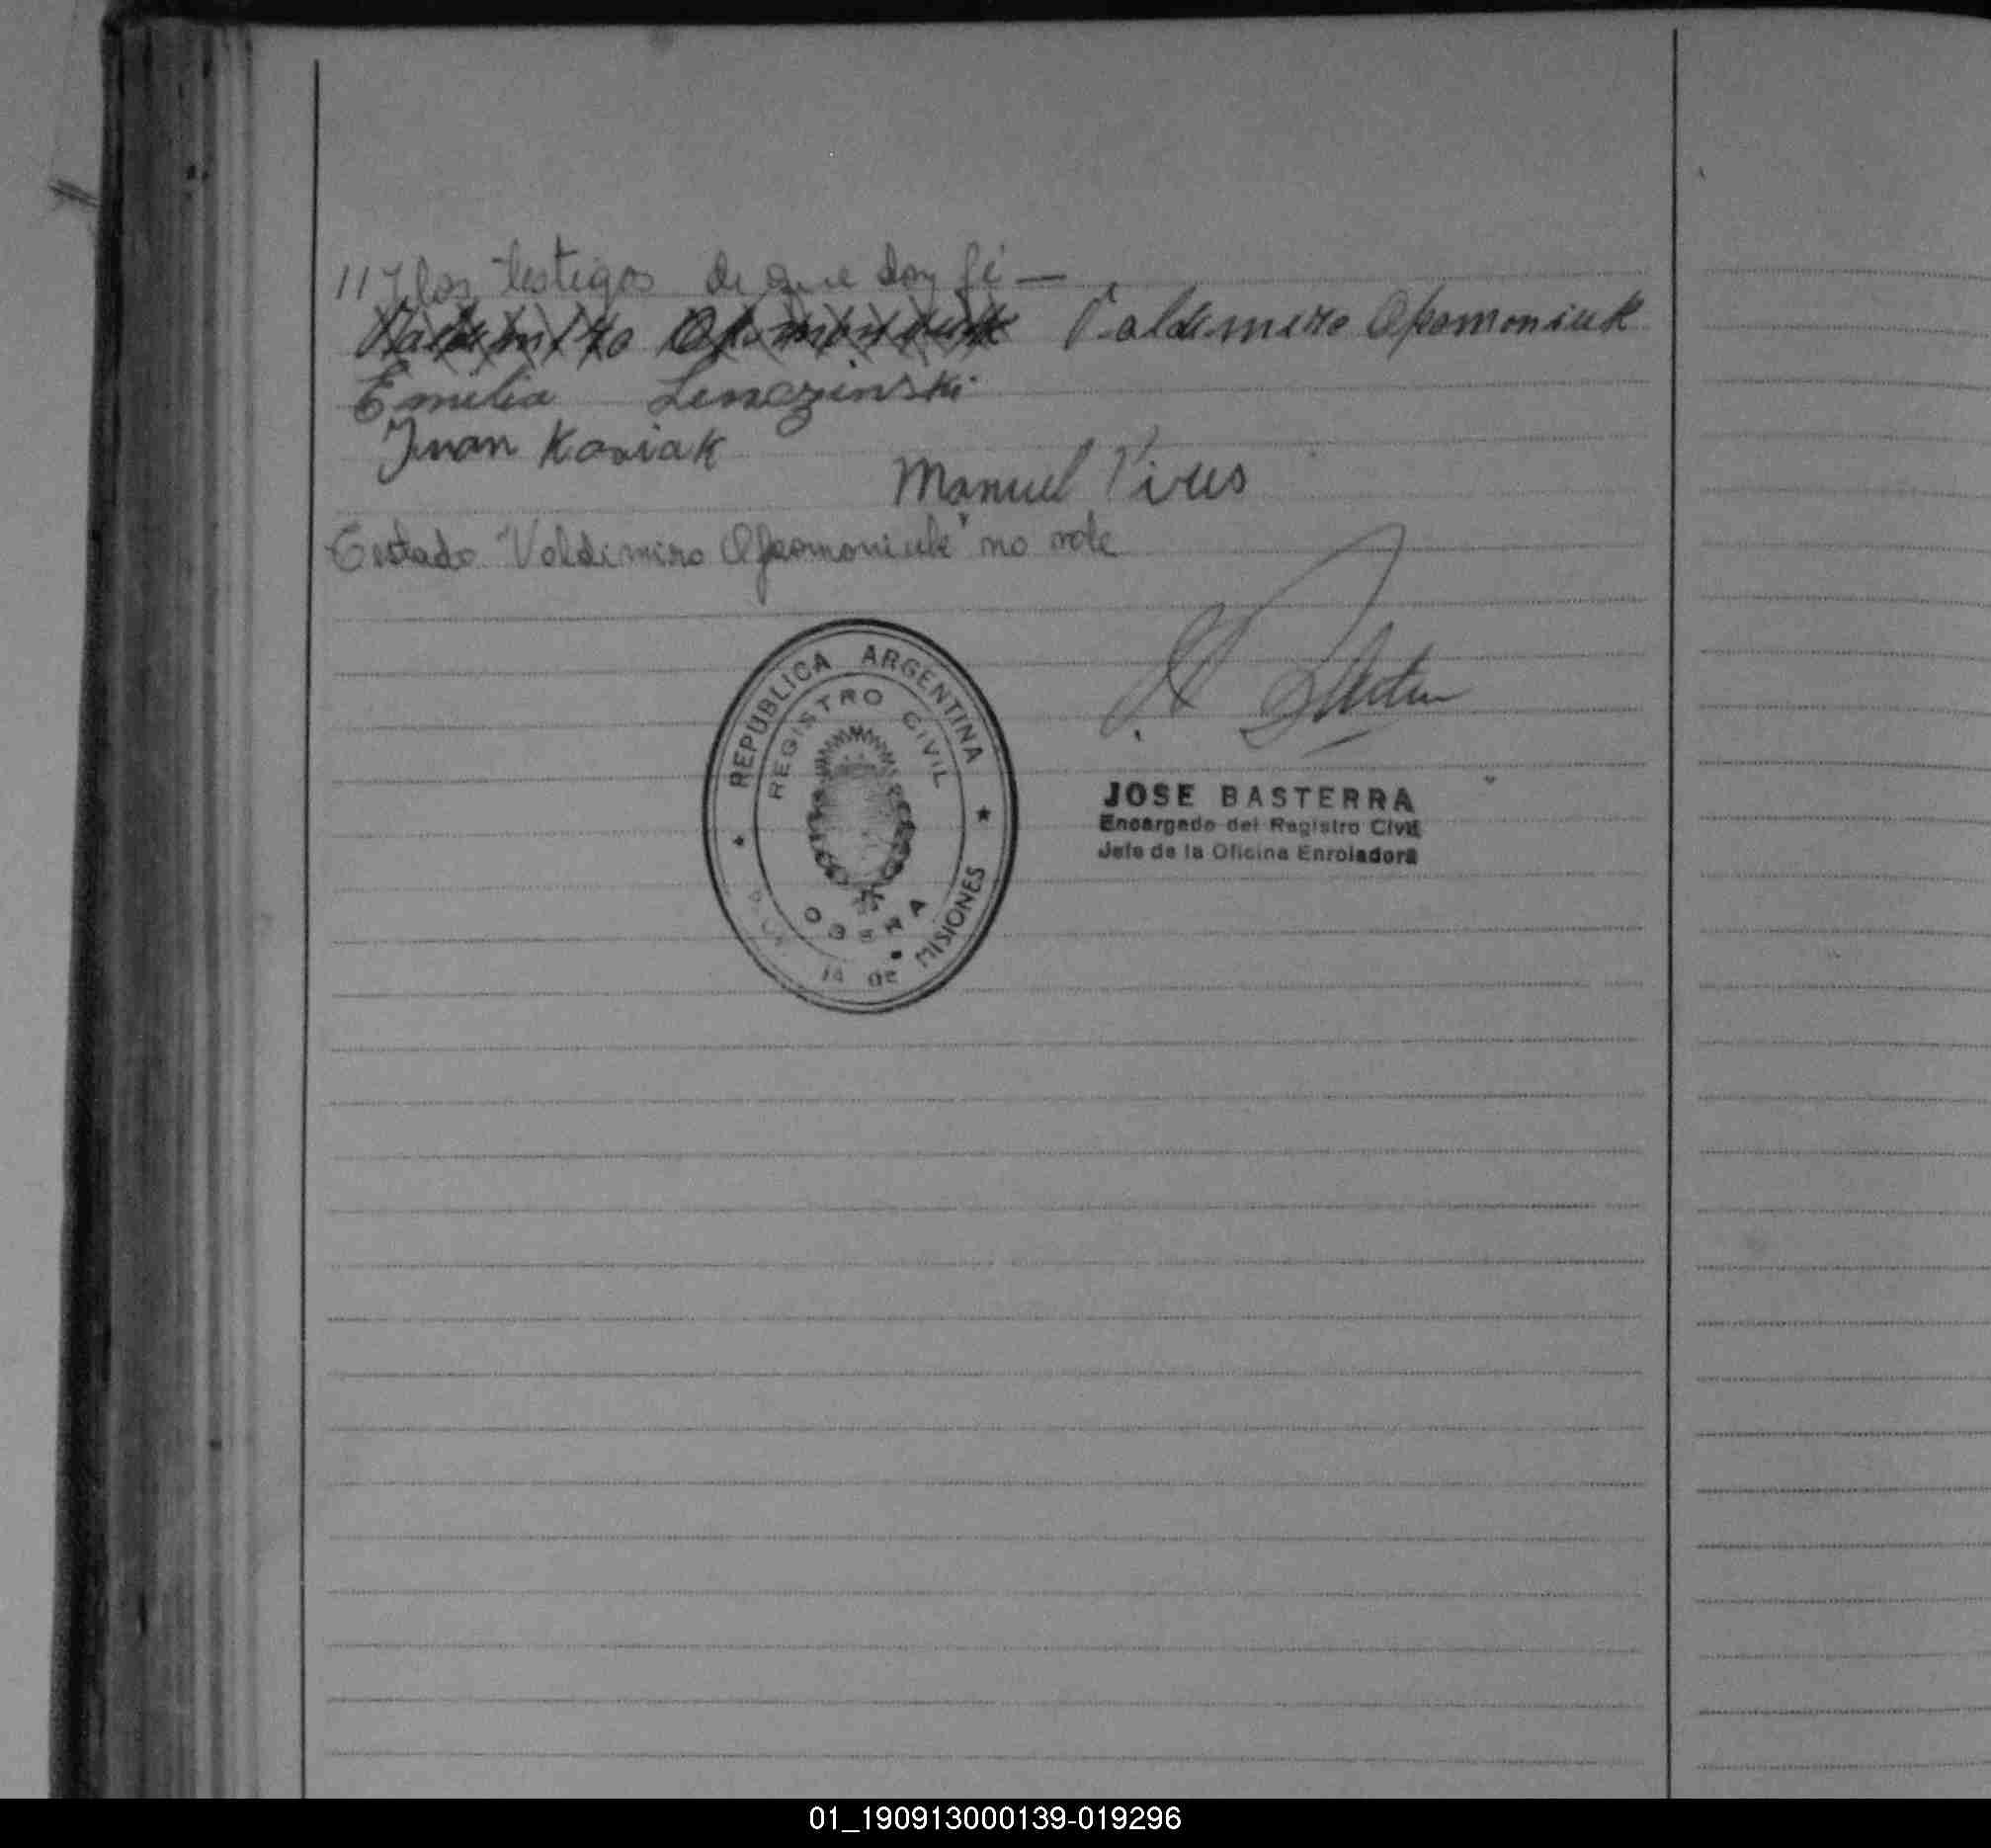 // y los testigos de que doy fé —
Valdimiro Opamoniuk Valdimiro Opamoniuk
Emilia Lenczinski
Juan Kosiak
Manuel Pires
Testado "Valdimiro Opamoniuk" no vale
REPUBLICA ARGENTINA
REGISTRO CIVIL
OBERA
DE MISIONES
JOSE BASTERRA
Encargado del Registro Civil
Jefe de la Oficina Enroladora
01_190913000139-019296